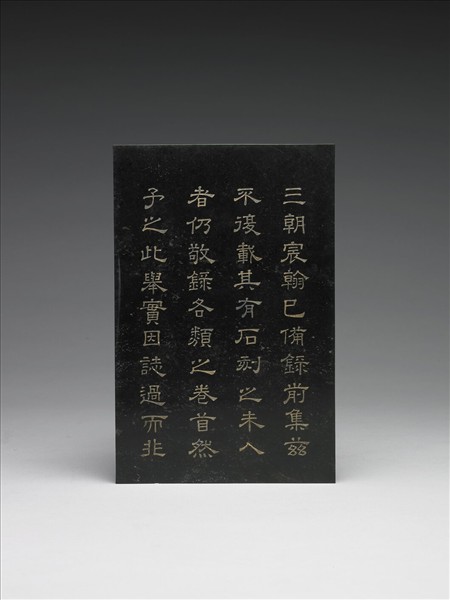 三朝宸翰已備錄前集茲
不復載其有石刻之未入
者仍敬錄各類之卷首然
予之此舉實因誌過而非